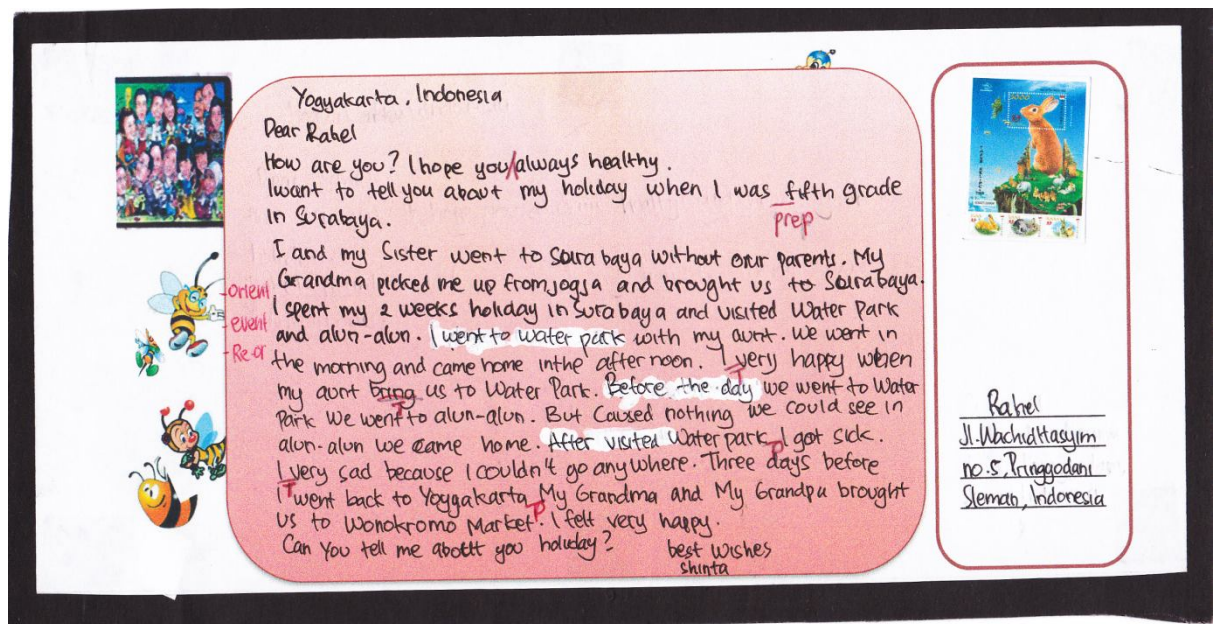 Yogyakarta, Indonesia
Dear Rahel
How are you? I hope you always healthy.
I want to tell you about my holiday when I was fifth grade
prep
in Surabaya.
I and my Sister went to Surabaya without our parents. My
Grandma picked me up from Jogja and brought us to Surabaya.
orient
I spent my 2 weeks holiday in Surabaya and visited Water Park
event
and alun-alun. I went to water park with my aunt. We went in
Re.or
the morning and came home in the after noon. I very happy when
T
my aunt bring us to Water Park. Before the day we went to Water
T
Park We went to alun-alun. But Caused nothing we could see in
alun-alun we came home. After visited Water park I got sick.
P
I very sad because I couldn't go anywhere. Three days before
T
I went back to Yogyakarta My Grandma and My Grandpa brought
P
us to Wonokromo Market. I felt very happy.
Can You tell me about you holiday?
best wishes
shinta
3000
Rahel
Jl. Wachid Hasyim
no.5, Pringgodani
Sleman, Indonesia